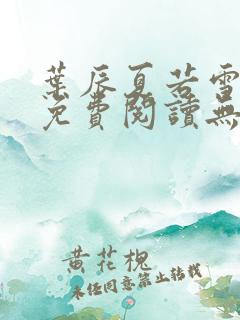 葉辰夏若雪
免費閱讀無
黃花槐
未經同意禁止轉載